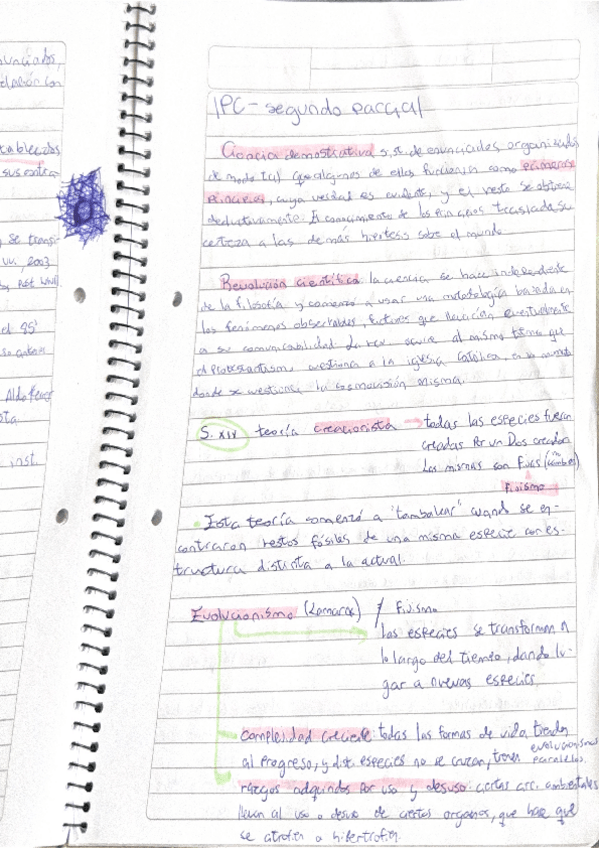 IPC - segundo parcial
Ciencia demostrativa sist. de enunciados organizados
de modo tal que algunos de ellos funcionan como primeros
principios, cuya verdad es evidente, y el resto se obtiene
deductivamente. El conocimiento de los principios traslada su
certeza a las demás hipótesis sobre el mundo.
Revolución científica: la ciencia se hace independiente
de la filosofía y comenzó a usar una metodología basada en
los fenómenos observables, factores que llevarían eventualmente
a su comunicabilidad. La rev. ocurre al mismo tiempo que
el Protestantismo cuestiona a la iglesia católica, en
donde se cuestiona la cosmovisión misma.
S. XIX teoría creacionista → todas las especies fueron
creadas por un Dios creador.
Las mismas son Fijas (no cambian)
Fijismo
Esta teoría comenzó a "tambalear" cuando se en-
contraron restos fósiles de una misma especie con es-
tructura distinta a la actual.
Evolucionismo (Lamarck) / Fijismo
las especies se transforman a
lo largo del tiempo, dando lu-
gar a nuevas especies
complejidad creciente: todas las formas de vida tienden
al progreso, y dist. especies no se cruzan, tienen evolucionismos paralelos.
rasgos adquiridos por uso y desuso: ciertas circ. ambientales
llevan al uso o desuso de ciertos organos, que hace que
se atrofien o hipertrofien.
enunciados,
establecidos
se transf
2003
el 85'
Aldo Ferrer
inst.